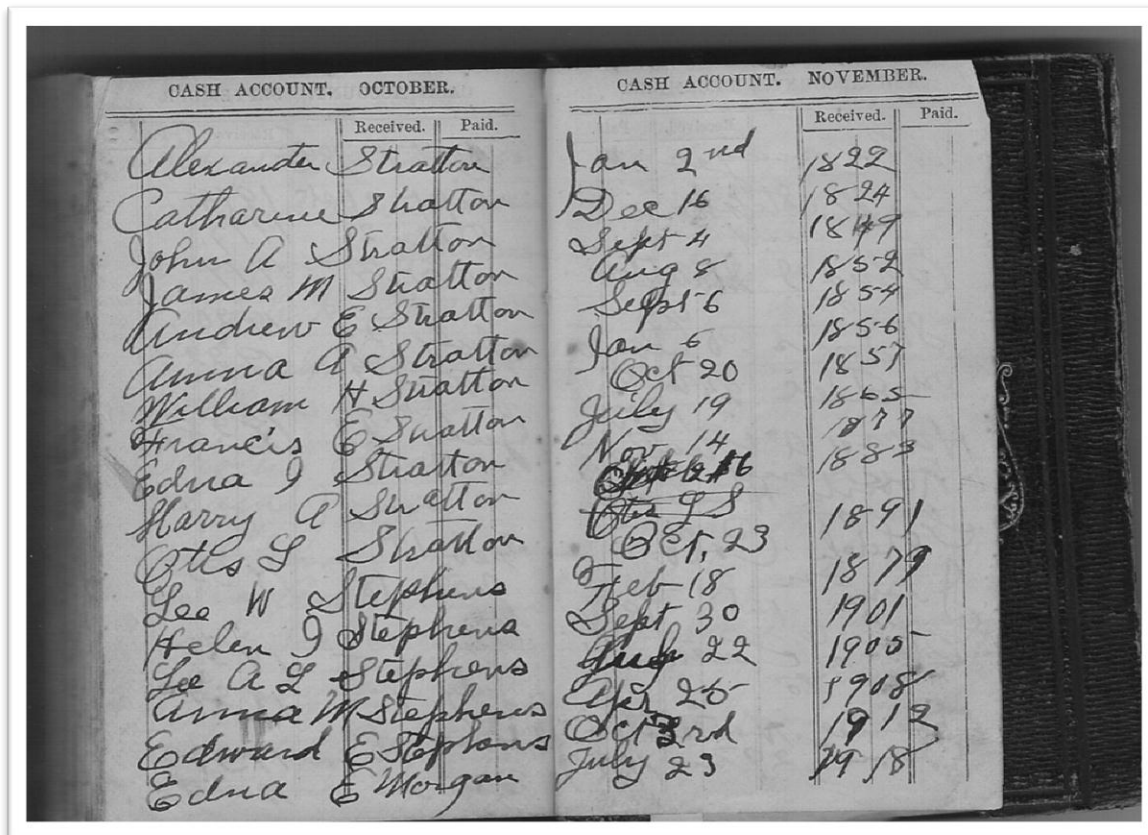 CASH ACCOUNT. OCTOBER.
Received. Paid.
Alexander Stratton
Catharine Stratton
John A Stratton
James M Stratton
Andrew E Stratton
Anna A Stratton
William H Stratton
Francis E Stratton
Edna I Stratton
Harry A Stratton
Otis L Stratton
Lee W Stephens
Helen I Stephens
Lee A L Stephens
Anna M Stephens
Edward E Stephens
Edna E Morgan
CASH ACCOUNT. NOVEMBER.
Received. Paid.
Jan 2nd 1822
Dec 16 1824
Sept 4 1849
Aug 8 1852
Sept 6 1854
Jan 6 1856
Oct 20 1857
July 19 1865
Nov 14 1877
1883
Otis L S
Oct, 23 1891
Feb 18 1879
Sept 30 1901
22 1905
Apr 25 1908
Oct 3rd 1912
July 23 1918